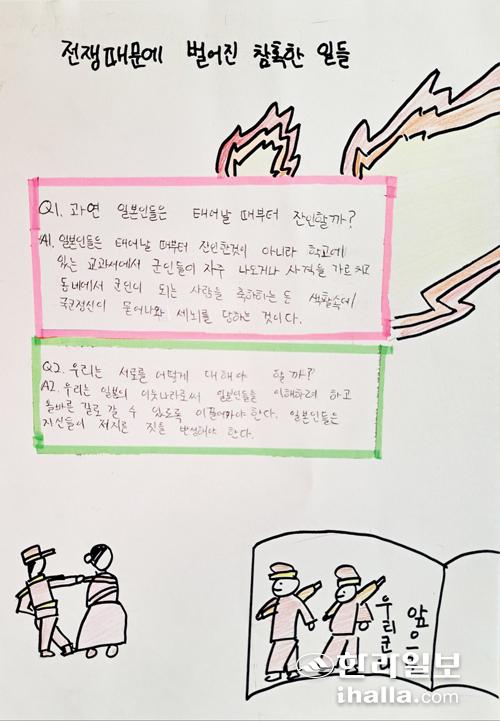 전쟁때문에 벌어진 참혹한 일들
Q1. 과연 일본인들은 태어날 때부터 잔인할까?
A1. 일본인들은 태어날 때부터 잔인한것이 아니라 학교에
있는 교과서에서 군인들이 자주 나오거나 사격을 가르치고
동네에서 군인이 되는 사람을 축하하는 둔 생활속에
국군정신이 묻어나와 세뇌를 당하는 것이다.
Q2. 우리는 서로를 어떻게 대해야 할까?
A2. 우리는 일본의 이웃나라로써 일본인들을 이해하려 하고
올바른 길로 갈 수 있도록 이끌어가야 한다. 일본인들은
자신들이 저지른 짓을 반성해야 한다.
앞으로
우리군대
한라일보
ihalla.com